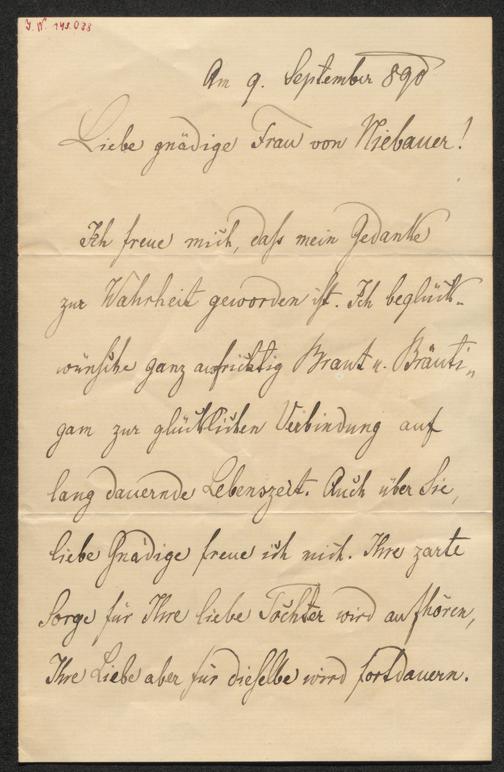 J. N. 145.038
Am 9. September 890
Liebe gnädige Frau von Niebauer!
Ich freue mich, daß mein Gedanke
zur Wahrheit geworden ist. Ich beglück-
wünsche ganz aufrichtig Braut u. Bräuti„
gam zur glücklichen Verbindung auf
lang dauernde Lebenszeit. Auch über Sie,
liebe Gnädige freue ich mich. Ihre zarte
Sorge für Ihre liebe Tochter wird aufhören,
Ihre Liebe aber für dieselbe wird fortdauern.